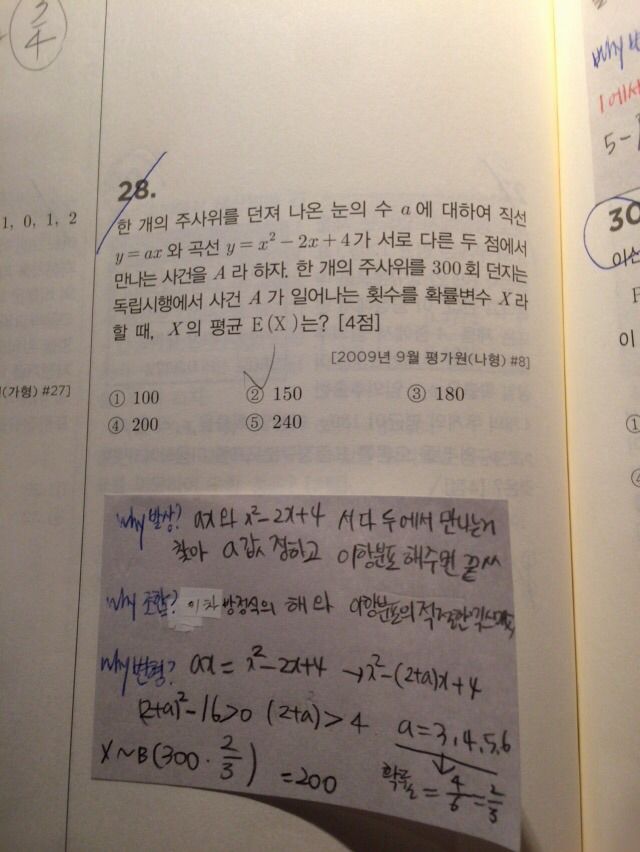 3/4
1, 0, 1, 2
(가형) #27]
28.
한 개의 주사위를 던져 나온 눈의 수 a에 대하여 직선
y=ax와 곡선 y=x²-2x+4가 서로 다른 두 점에서
만나는 사건을 A라 하자. 한 개의 주사위를 300회 던지는
독립시행에서 사건 A가 일어나는 횟수를 확률변수 X라
할 때, X의 평균 E(X)는? [4점]
[2009년 9월 평가원(나형) #8]
① 100 ② 150 ③ 180
④ 200 ⑤ 240
why 발상? ax와 x²-2x+4 서다 두에서 만나는거
찾아 a값 정하고 이항분포 해주면 끝
why 조합? 이차방정식의 해와 이항분포의 적절한
why 변형? ax = x²-2x+4 → x²-(2+a)x+4
(2+a)²-16>0 (2+a)>4 a=3,4,5,6
X~B(300·2/3) =200 확률 = 4/6 = 2/3
why
1에서
5-
30
이
①
④